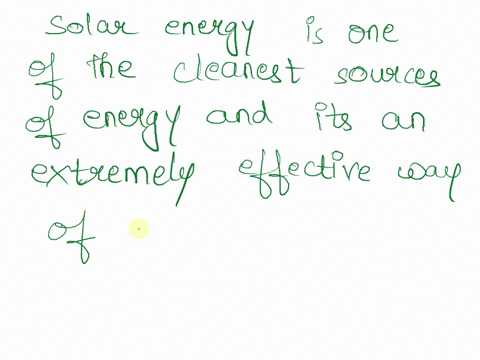 Solar energy is one
of the cleanest sources
of energy and its an
extremely effective way
of